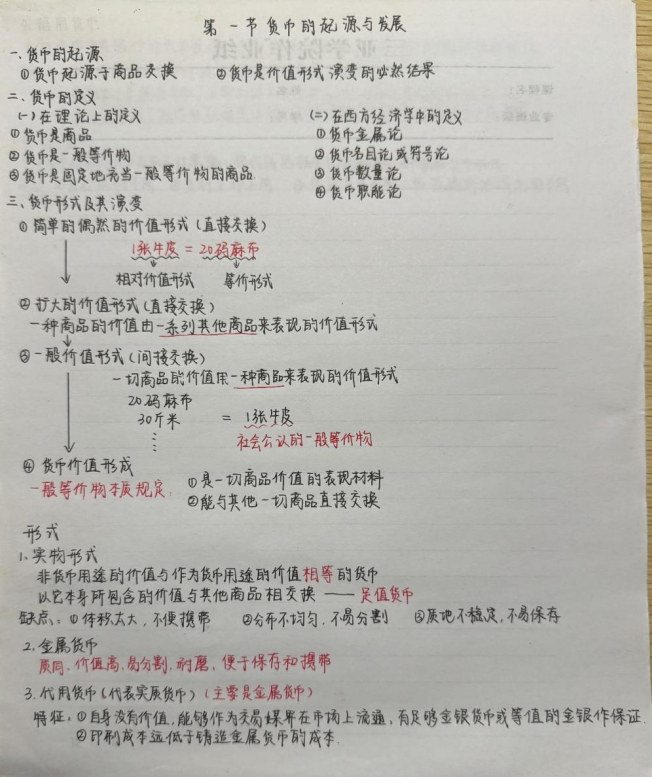 第一节货币的起源与发展
一、货币的起源
①货币起源于商品交换 ②货币是价值形式演变的必然结果
二、货币的定义
(一)在理论上的定义 (二)在西方经济学中的定义
①货币是商品 ①货币金属论
②货币是一般等价物 ②货币名目论或符号论
③货币是固定地充当一般等价物的商品 ③货币数量论
④货币职能论
三、货币形式及其演变
①简单的偶然的价值形式(直接交换)
1张牛皮 = 20码麻布
相对价值形式 等价形式
②扩大的价值形式(直接交换)
一种商品的价值由一系列其他商品来表现的价值形式
③一般价值形式(间接交换)
一切商品的价值用一种商品来表现的价值形式
20码麻布
30斤米 = 1张牛皮
⋮ 社会公认的一般等价物
④货币价值形成
一般等价物本质规定: ①是一切商品价值的表现材料
②能与其他一切商品直接交换
形式
1、实物形式
非货币用途的价值与作为货币用途的价值相等的货币
以它本身所包含的价值与其他商品相交换 —— 足值货币
缺点: ①体积太大,不便携带 ②分布不均匀,不易分割 ③质地不稳定,不易保存
2.金属货币
质同、价值高、易分割、耐磨、便于保存和携带
3.代用货币(代表实质货币)(主要是金属货币)
特征:①自身没有价值,能够作为交易媒界在市场上流通,有足够金银货币或等值的金银作保证.
②印制成本远低于铸造金属货币的成本.